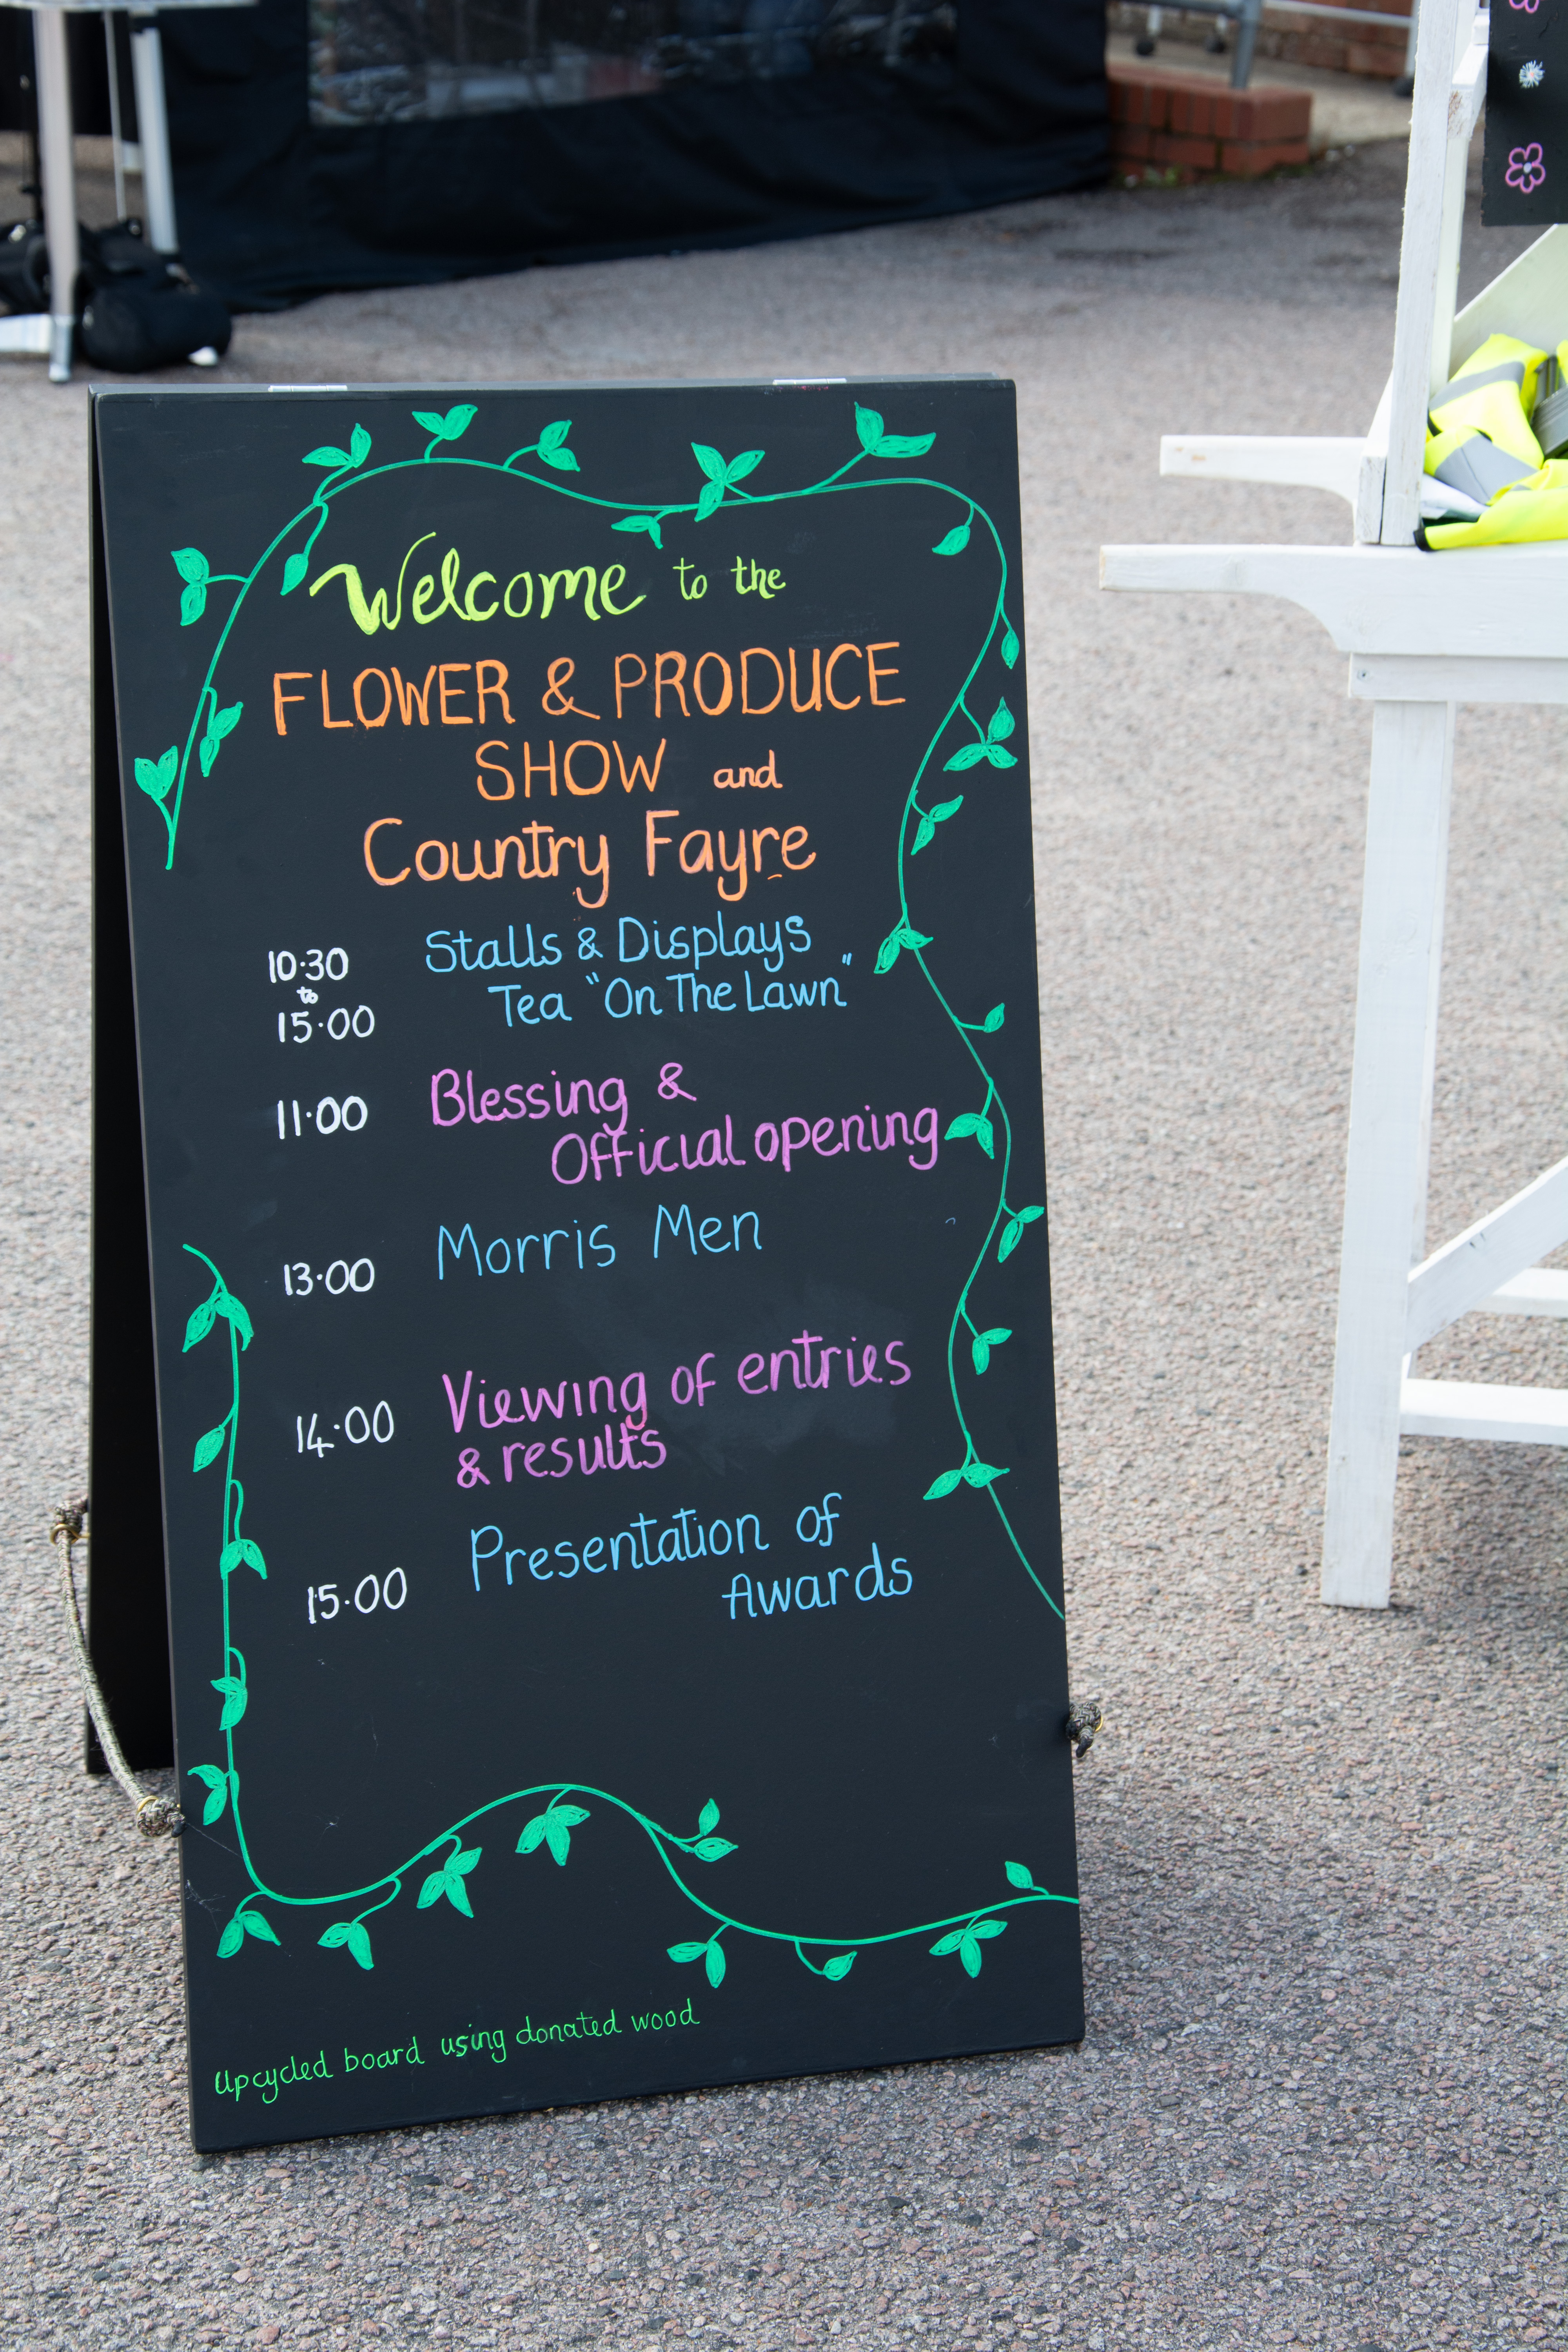 Welcome to the
FLOWER & PRODUCE
SHOW and
Country Fayre
10·30 Stalls & Displays
to
15·00 Tea "On The Lawn"
11·00 Blessing &
Official opening
13·00 Morris Men
14·00 Viewing of entries
& results
15·00 Presentation of
Awards
Upcycled board using donated wood